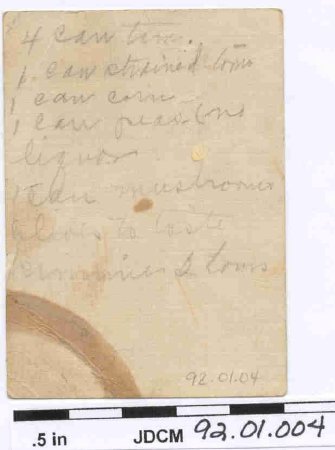 4 can
1 can strained toms
1 can corn
1 can peas (no
liquor
1 can mushrooms
olives to taste
2 toms
92.01.04
.5 in JDCM 92.01.004